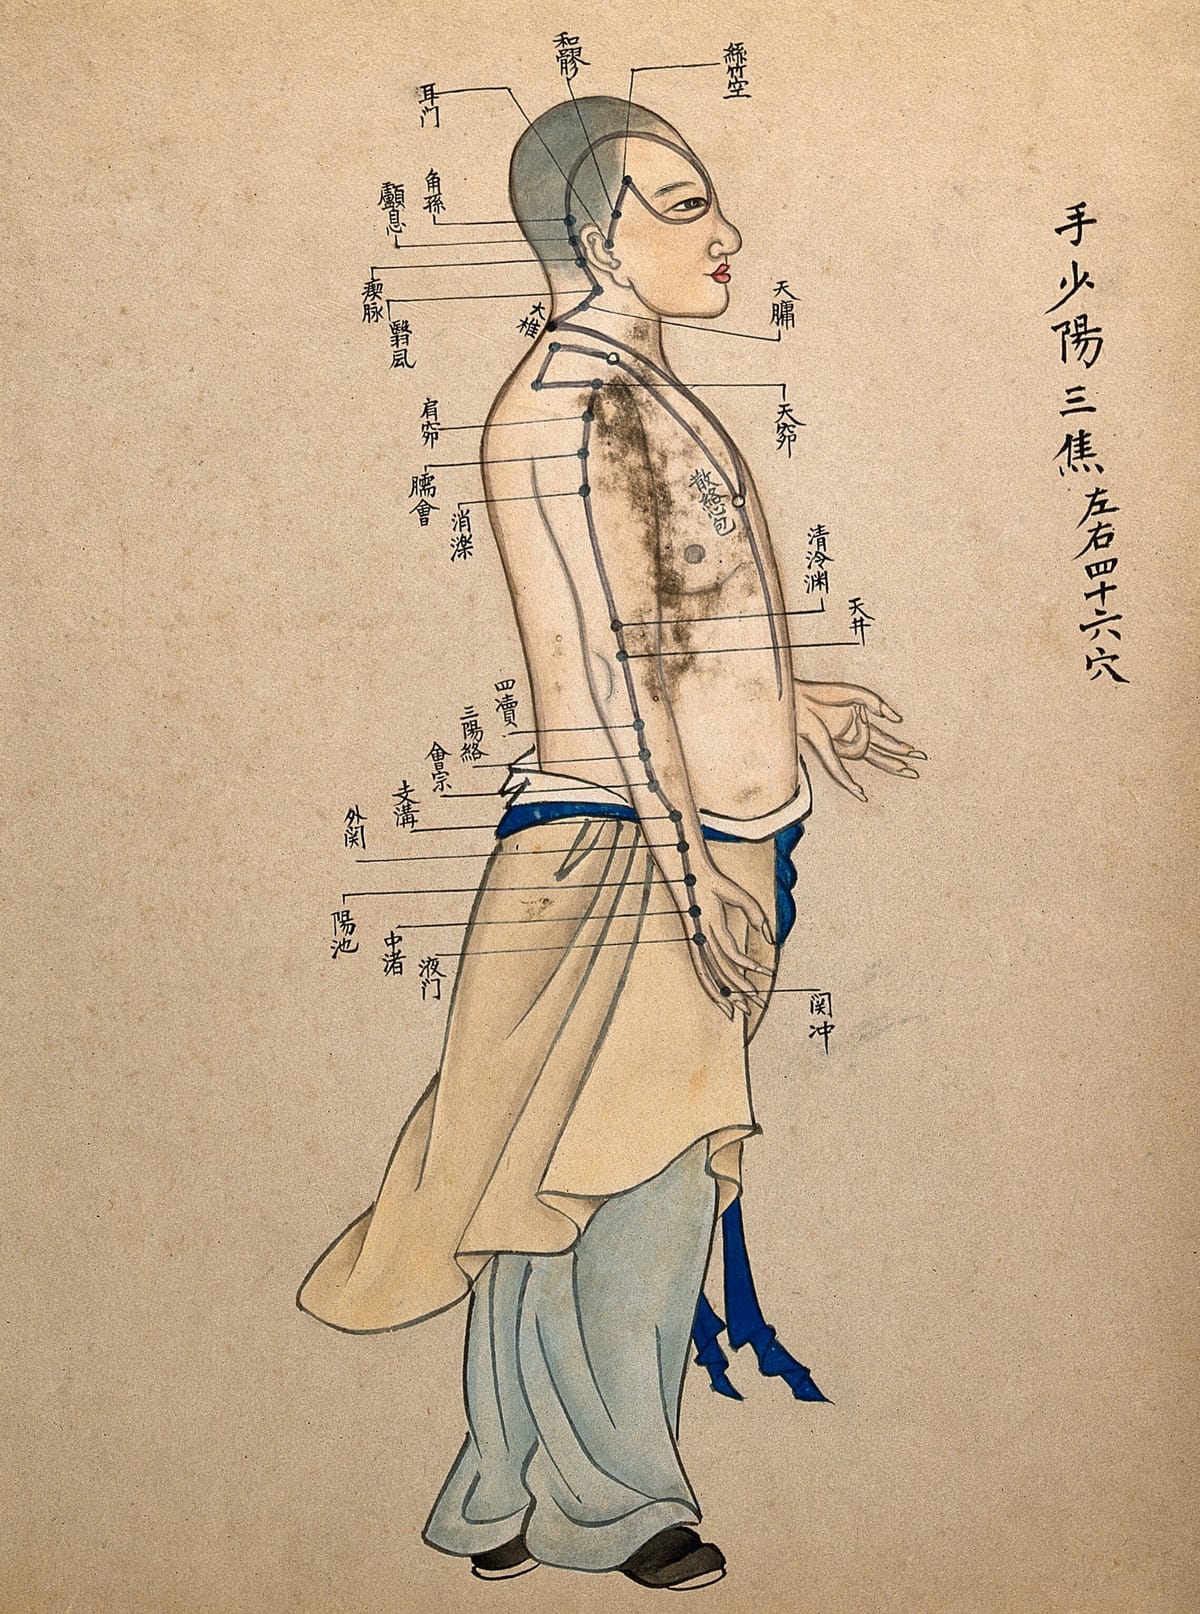 手少陽三焦左右四十六穴
絲竹空
和髎
耳门
角孫
顱息
瘈脉
翳風
大椎
天牖
天窌
肩窌
臑會
消濼
散絡心包
清泠渊
天井
四瀆
三陽絡
會宗
支溝
外関
陽池
中渚
液门
関冲